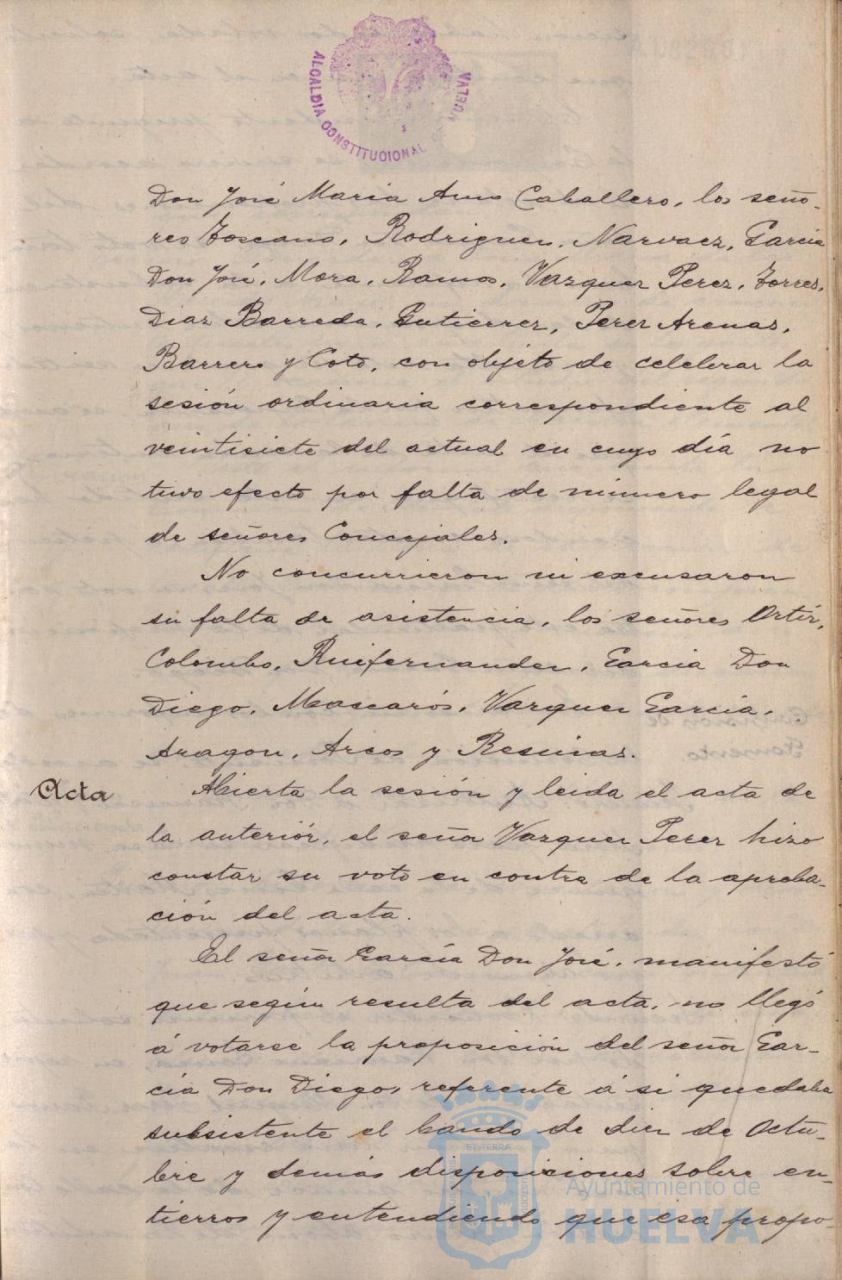 ALCALDIA CONSTITUCIONAL HUELVA
Don José Maria Amo Caballero, los seño-
res Toscano, Rodriguez, Narvaez, García
Don José, Mora, Ramos, Vazquez Perez, Torres,
Diaz Barreda, Gutierrez, Perez Arenas,
Barrero y Coto, con objeto de celebrar la
sesión ordinaria correspondiente al
veintisiete del actual en cuyo día no
tuvo efecto por falta de número legal
de señores Concejales.
No concurrieron ni excusaron
su falta de asistencia, los señores Ortíz,
Colombo, Ruifernandez, Garcia Don
Diego, Mascarós, Vazquez García,
Aragon, Arcos y Resinas.
Acta
Abierta la sesión y leida el acta de
la anteriór, el señor Vazquez Perez hizo
constar su voto en contra de la aproba-
ción del acta.
El señor García Don José, manifestó
que según resulta del acta, no llegó
á votarse la proposición del señor Gar-
cía Don Diego, referente á si quedaba
subsistente el bando de diez de Octu-
bre y demás disposiciones sobre en-
tierros y entendiendo que esa propo-
Ayuntamiento de
HUELVA